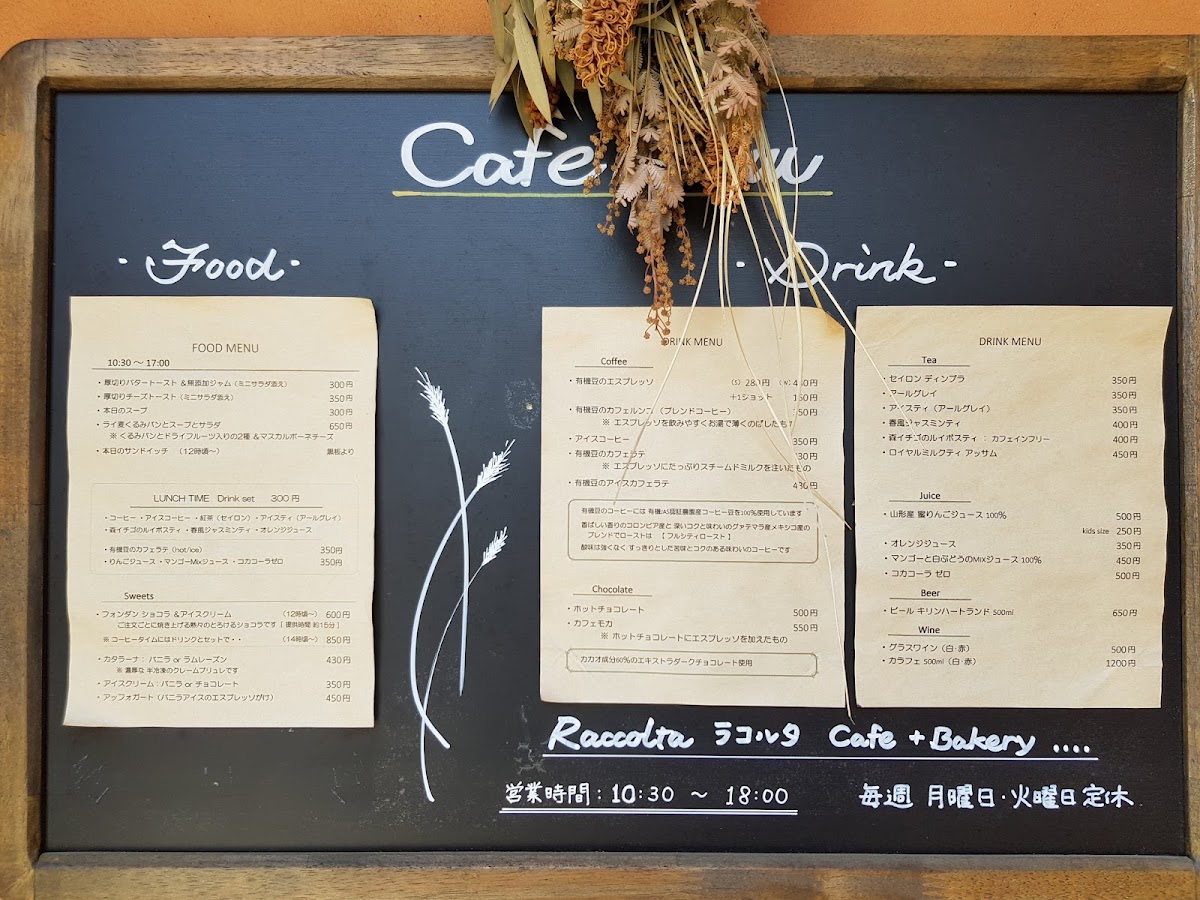 Cafe
· Food ·
· Drink -
FOOD MENU
10:30 ～ 17:00
・厚切りバタートースト ＆無添加ジャム（ミニサラダ添え） 300円
・厚切りチーズトースト（ミニサラダ添え） 350円
・本日のスープ 300円
・ライ麦くるみパンとスープとサラダ 650円
※ くるみパンとドライフルーツ入りの2種 ＆マスカルポーネチーズ
・本日のサンドイッチ （12時頃～） 黒板より
LUNCH TIME Drink set 300円
・コーヒー ・アイスコーヒー ・紅茶（セイロン）・アイスティ（アールグレイ）
・森イチゴのルイボスティ ・春風ジャスミンティ ・オレンジジュース
・有機豆のカフェラテ（hot/ice） 350円
・りんごジュース ・マンゴーMixジュース ・コカコーラゼロ 350円
Sweets
・フォンダン ショコラ ＆アイスクリーム （12時頃～） 600円
ご注文ごとに焼き上げる熱々のとろけるショコラです［ 提供時間 約15分 ］
※ コーヒータイムにはドリンクとセットで・・ （14時頃～） 850円
・カタラーナ： バニラ or ラムレーズン 430円
※ 濃厚な 半冷凍のクレームブリュレです
・アイスクリーム：バニラ or チョコレート 350円
・アッフォガート（バニラアイスのエスプレッソがけ） 450円
DRINK MENU
Coffee
・有機豆のエスプレッソ （S）280円 （W）430円
＋1ショット 150円
・有機豆のカフェルンゴ（ブレンドコーヒー） 350円
※ エスプレッソを飲みやすくお湯で薄くのばしたもの
・アイスコーヒー 350円
・有機豆のカフェラテ 430円
※ エスプレッソにたっぷりスチームドミルクを注いだもの
・有機豆のアイスカフェラテ 430円
有機豆のコーヒーには 有機JAS認証農園産コーヒー豆を100％使用しています
香ばしい香りのコロンビア産と 深いコクと味わいのグァテマラ産メキシコ産の
ブレンドでローストは 【 フルシティロースト 】
酸味は強くなく すっきりとした苦味とコクのある味わいのコーヒーです
Chocolate
・ホットチョコレート 500円
・カフェモカ 550円
※ ホットチョコレートにエスプレッソを加えたもの
カカオ成分60％のエキストラダークチョコレート使用
DRINK MENU
Tea
・セイロン ディンブラ 350円
・アールグレイ 350円
・アイスティ（アールグレイ） 350円
・春風ジャスミンティ 400円
・森イチゴのルイボスティ ： カフェインフリー 400円
・ロイヤルミルクティ アッサム 450円
Juice
・山形産 蜜りんごジュース 100％ 500円
kids size 250円
・オレンジジュース 350円
・マンゴーと白ぶどうのMIXジュース 100％ 450円
・コカコーラ ゼロ 500円
Beer
・ビール キリンハートランド 500ml 650円
Wine
・グラスワイン（白・赤） 500円
・カラフェ 500ml（白・赤） 1200円
Raccolta ラコルタ Cafe + Bakery ....
営業時間：10:30 ～ 18:00
毎週 月曜日・火曜日定休